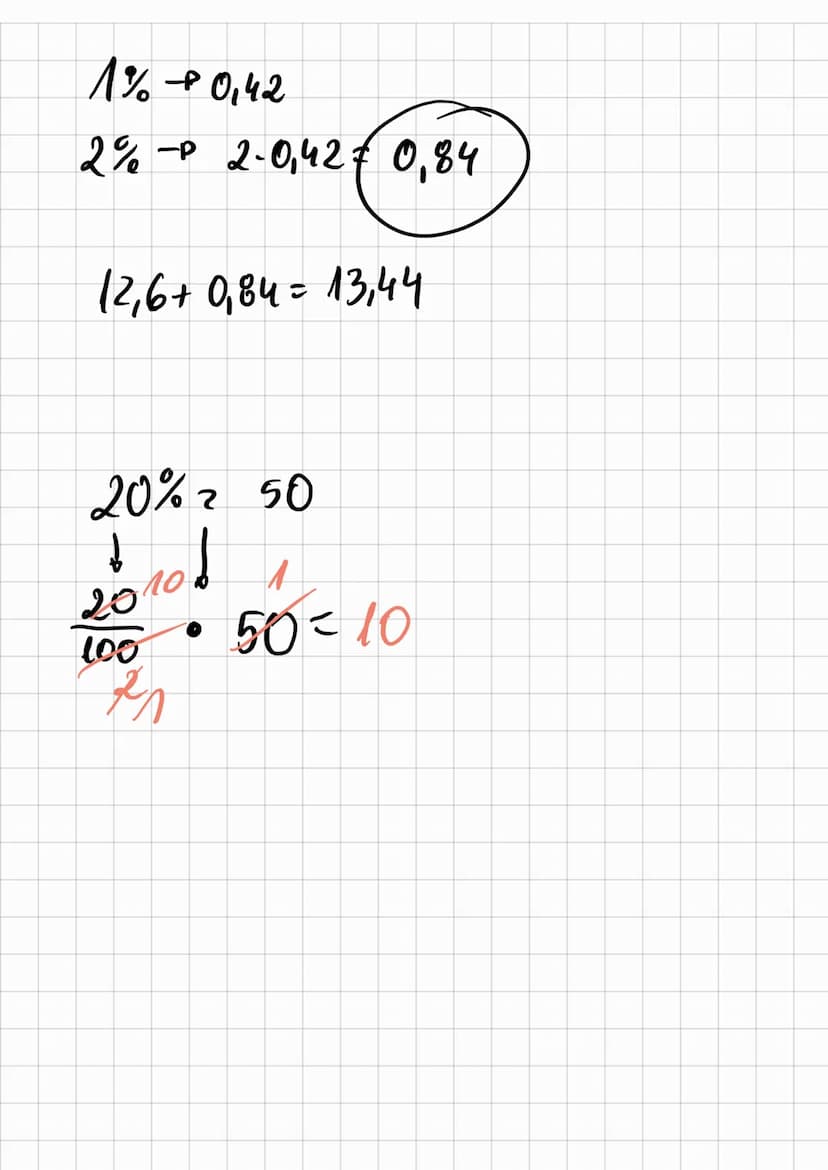 1% → 0,42
2% → 2·0,42 = 0,84
12,6 + 0,84 = 13,44
20% z 50
↓ ↓
20 10 1
— · 50 = 10
100
2 1